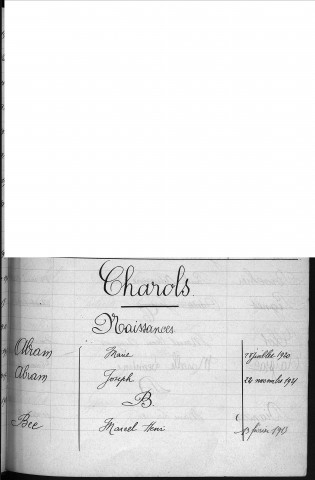 Charols
Naissances
Abram Marie juillet
Abram Joseph 24 novembre
B
Bec Marcel Henri 13 février